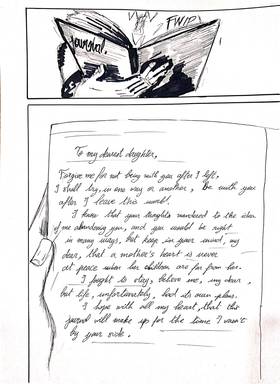 Journal.
FWIP
To my dearest daughter,
Forgive me for not being with you after I left.
I shall try, in one way or another, be with you
after I leave this world.
I know that your thoughts wandered to the idea
of me abandoning you, and you would be right
in many ways, but keep in your mind, my
dear, that a mother's heart is never
at peace when her children are far from her.
I fought to stay, believe me, my dear,
but life, unfortunately, had its own plans.
I hope with all my heart, that this
journal will make up for the time I wasn't
by your side.